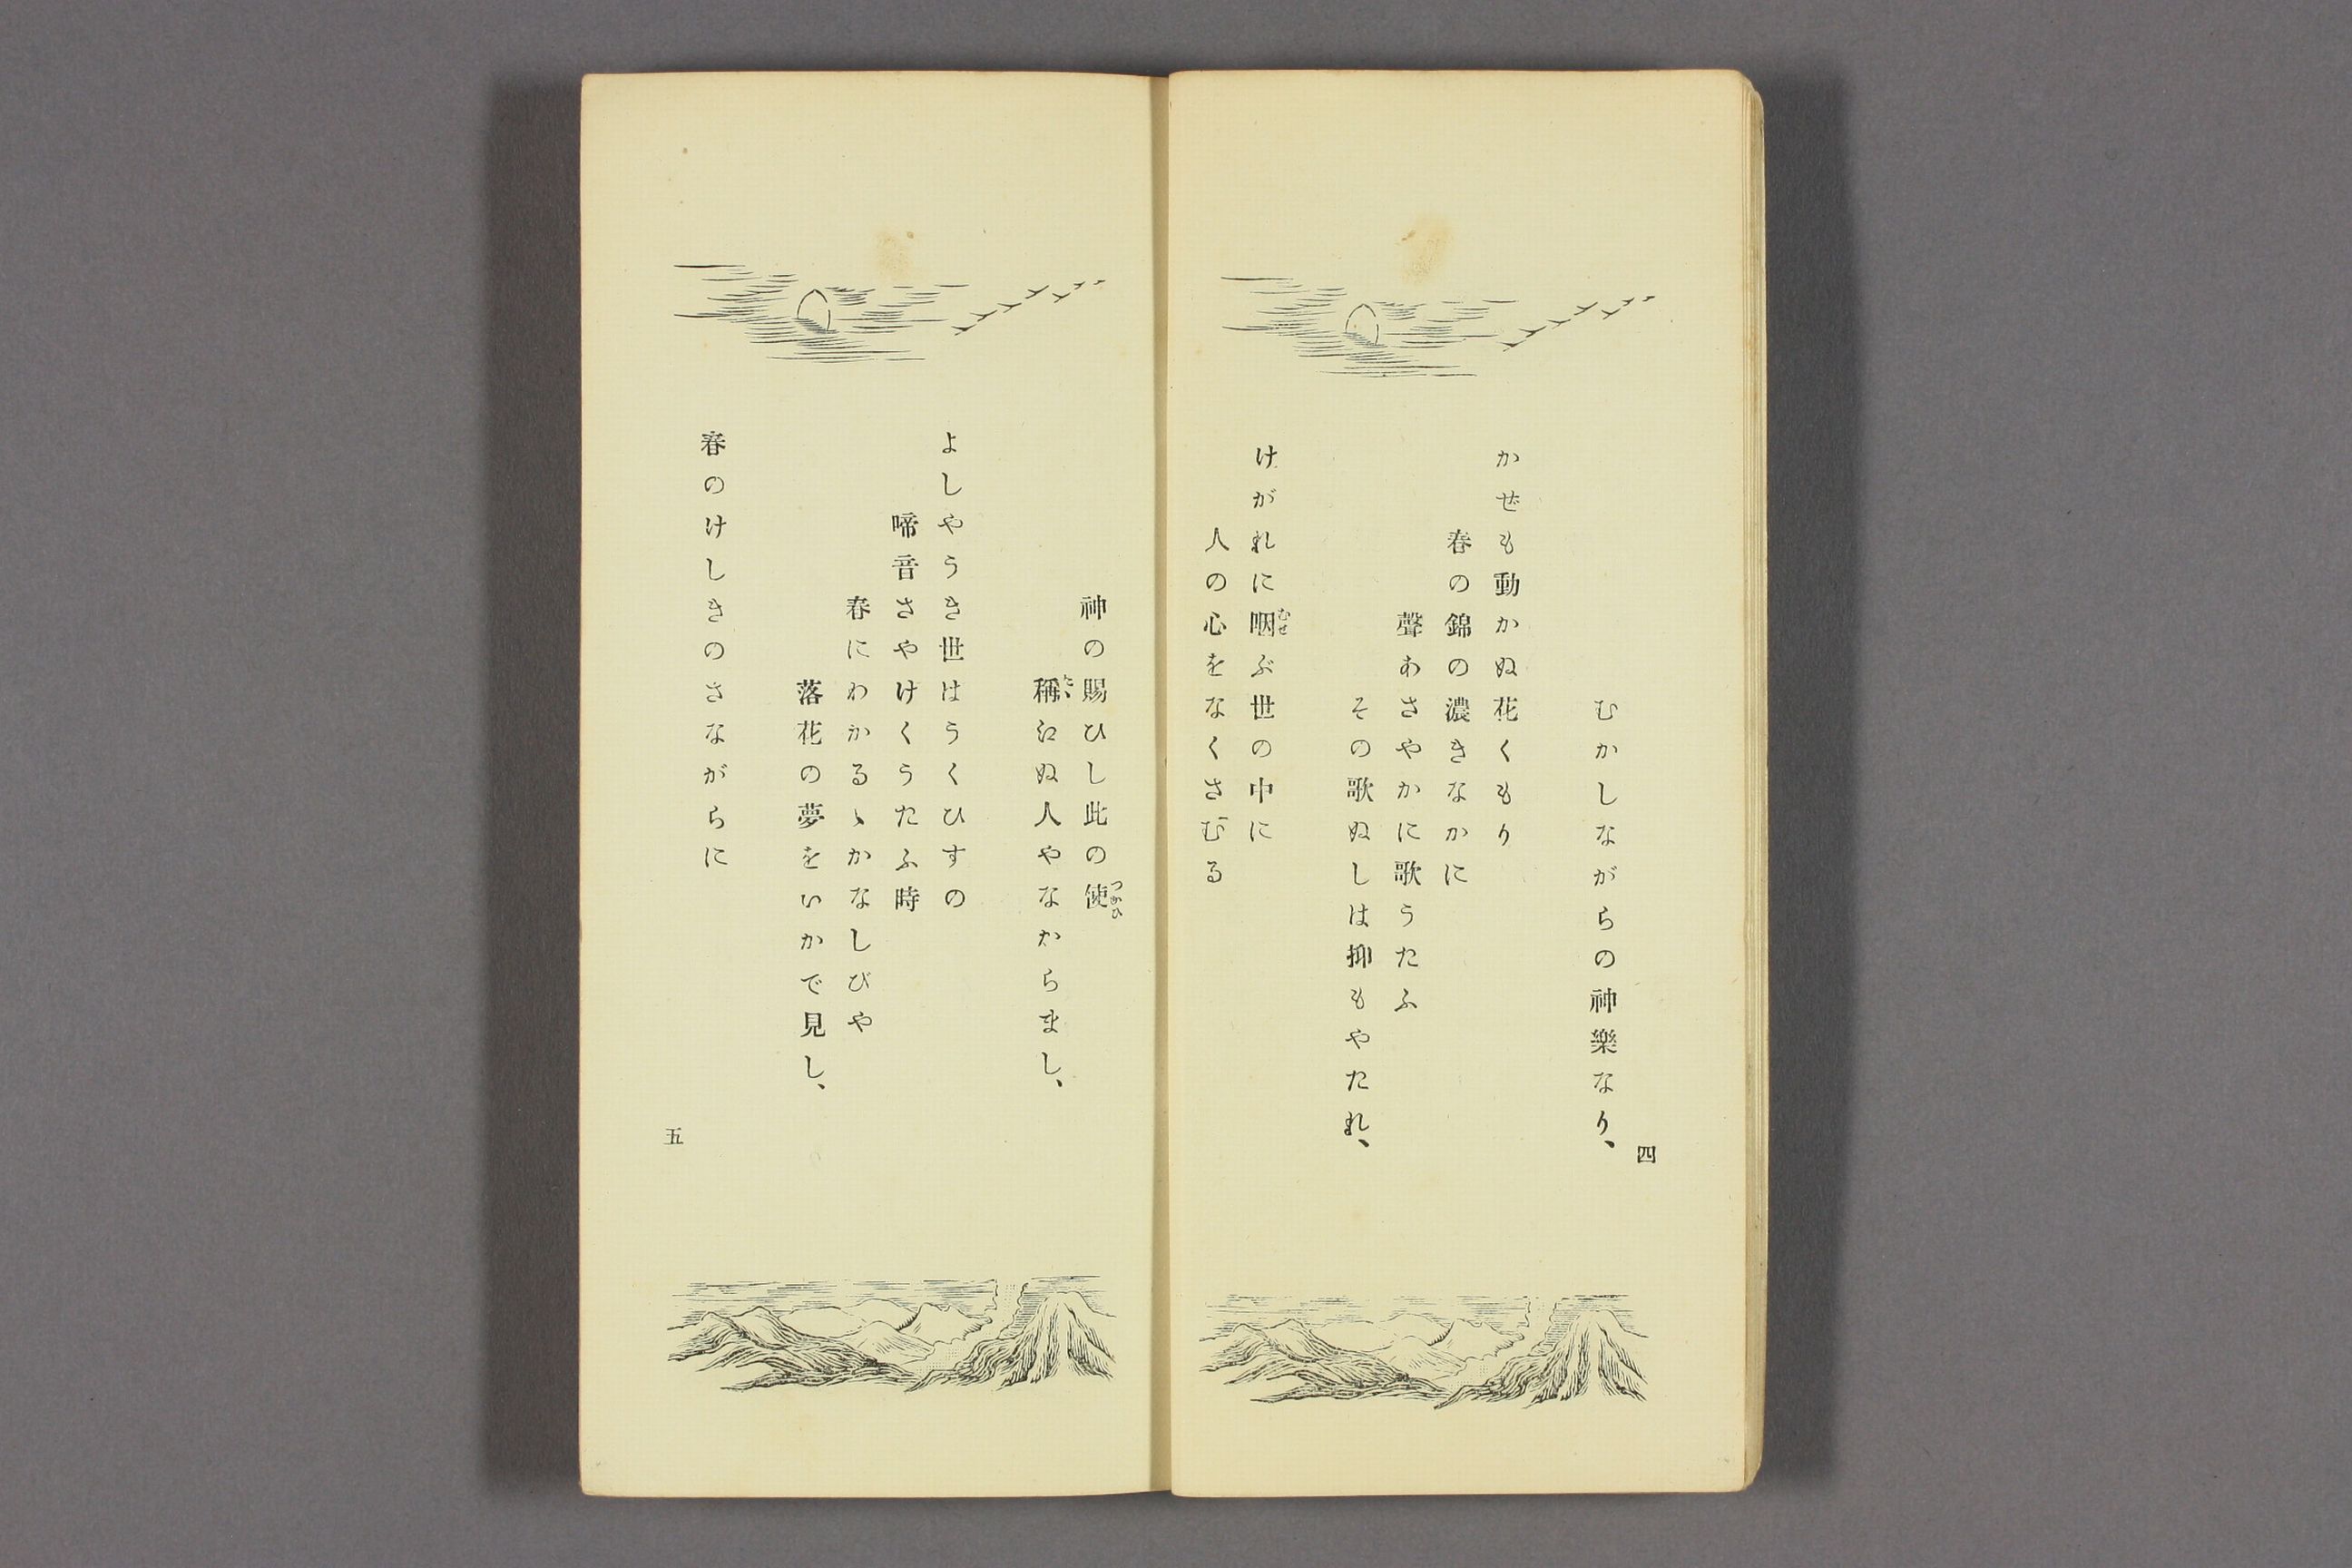 四
むかしながらの神樂なり、
かぜも動かぬ花くもり
春の錦の濃きなかに
聲あさやかに歌うたふ
その歌ぬしは抑もやたれ、
けがれに咽ぶ世の中に
むせ
人の心をなくさむる
神の賜ひし此の使
つかひ
稱江ぬ人やなからまし、
たゝ
よしやうき世はうくひすの
啼音さやけくうたふ時
春にわかるゝかなしびや
落花の夢をいかで見し、
春のけしきのさながらに
五